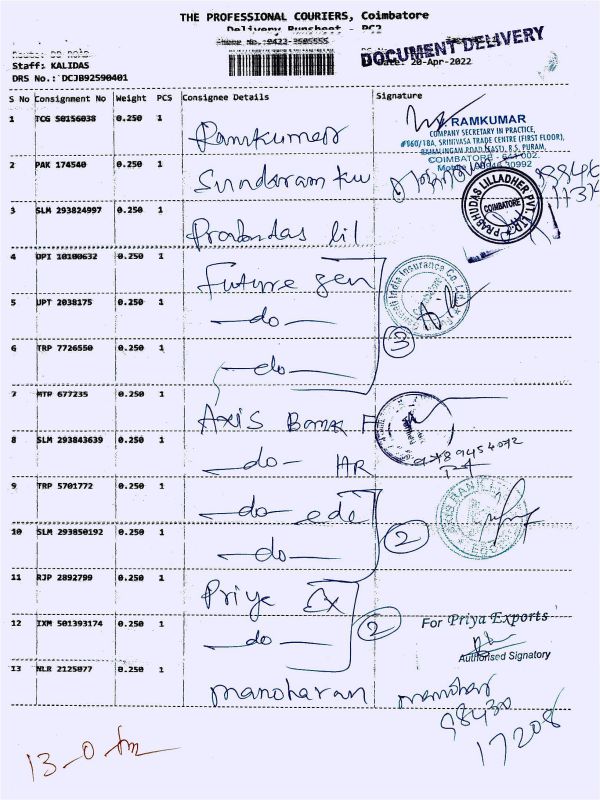 THE PROFESSIONAL COURIERS, Coimbatore
Delivery Runsheet - PC2
Phone No.:0422-3505555
DOCUMENT DELIVERY
Staff: KALIDAS
Date: 20-Apr-2022
DRS No.: DCJB92590401
S No Consignment No Weight PCS Consignee Details Signature
1 TCG 50156038 0.250 1 Ramkumar
RAMKUMAR
COMPANY SECRETARY IN PRACTICE,
#660/18A, SRINIVASA TRADE CENTRE (FIRST FLOOR),
R.S. PURAM,
COIMBATORE - 641 002.
2 PAK 174540 0.250 1 Sundaram ku
3 SLM 293824997 0.250 1 Prabhudas lil
PRABHUDAS LILLADHER PVT. LTD.
COIMBATORE
4 OPI 10100632 0.250 1 Future gen
India Insurance Co. Ltd.
5 UPT 2038175 0.250 1 —do—
3
6 TRP 7726550 0.250 1 —do—
7 MTP 677235 0.250 1 Axis Bank F
8 SLM 293843639 0.250 1 —do— HR
9789454092
9 TRP 5701772 0.250 1 —do— ede
10 SLM 293850192 0.250 1 —do—
2
11 RJP 2892799 0.250 1 Priya Ex
12 IXM 501393174 0.250 1 —do—
2
For Priya Exports
Authorised Signatory
13 NLR 2125077 0.250 1 manoharan
manohar
98430
17208